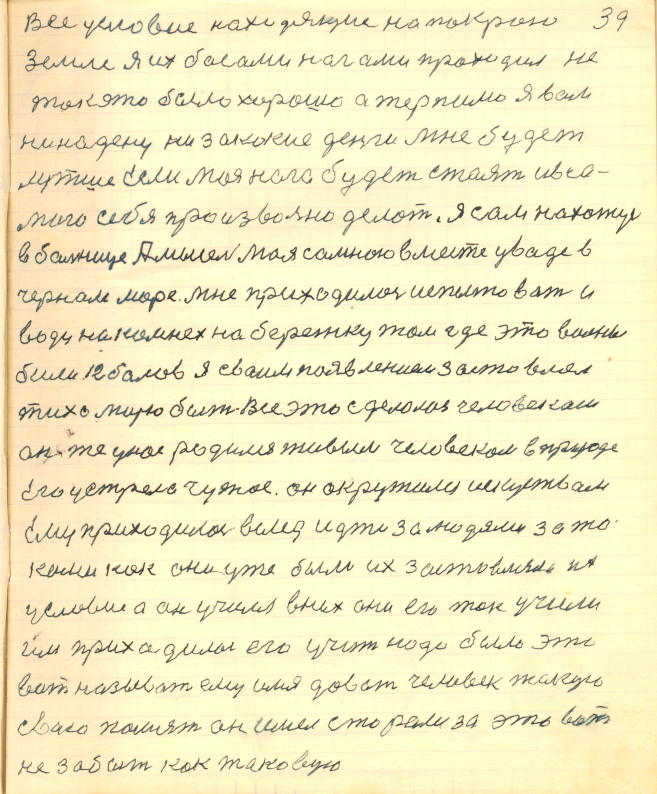 39
Все условие находящие на покрою
Земле я их босами нагами проходил не
так это было хорошо а терпимо я вам
ни надену ни за какие денги мне будет
лутше Если моя нага будет стаят и вса-
мого себя произвояно делот. Я сам нахожус
в болнице А мысел моя самною вместе уваде в
чернам море. мне приходилос испытоват и
воду на камнех на бережку там где это волны
были 12 балов я сваим появлением заставлял
тихо морю быт. Все это сделолос человеком
он же у нас родился живым человеком в природе
Его устрело чужое. он окружился искуствам
Ему приходилос вслед идти за людями за та
кими как они уже были их заставляли их
условие а он учился в них они его так учили
им приходилос его учит надо было это
вот называт ему имя доват человек такую
сваю памят он имел старался за это вот
не забыт как таковую